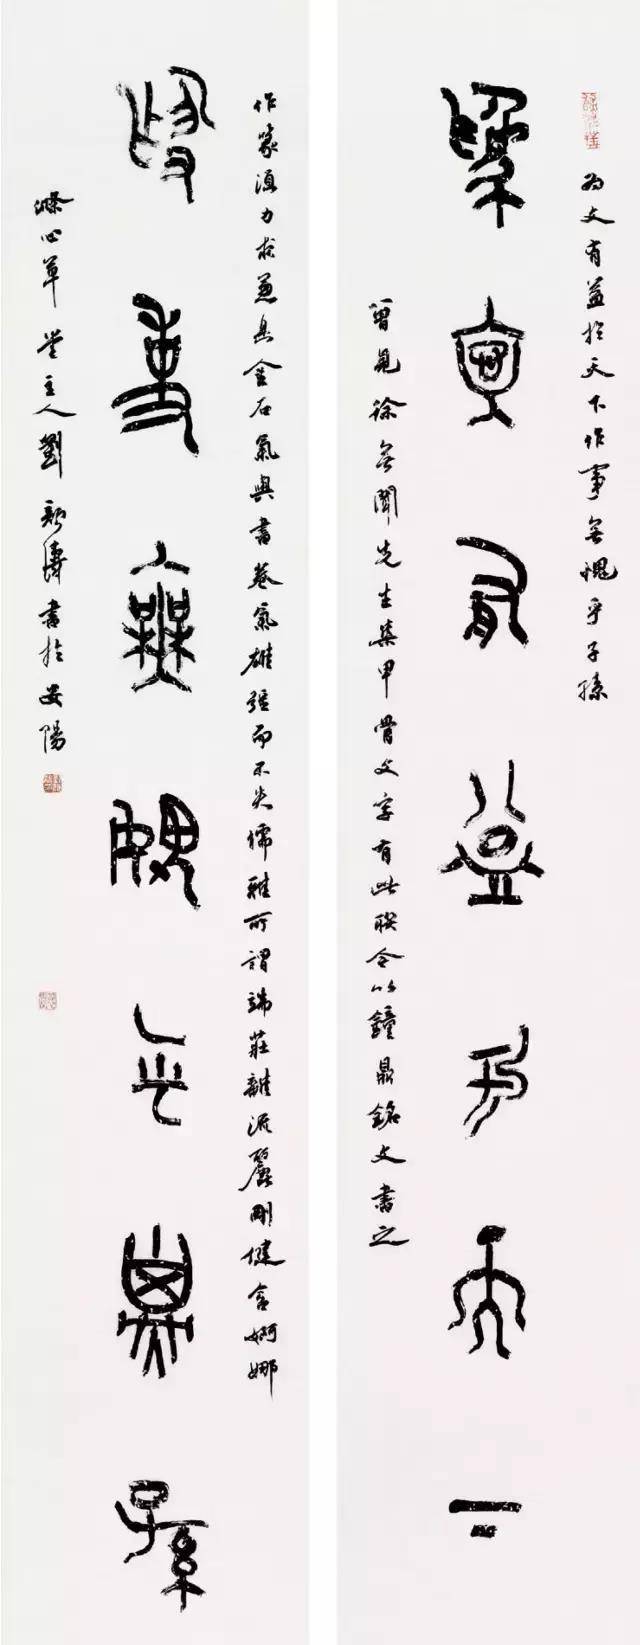 為文有益於天下作事無愧乎子孫
有益天下
曾見徐無聞先生集甲骨文字有此聯今以鐘鼎銘文書之
作篆須力求兼具金石氣與書卷氣雄強而不失儒雅可謂端莊雜流麗剛健含婀娜
事愧孫
滌心草堂主人劉顏濤書於安陽